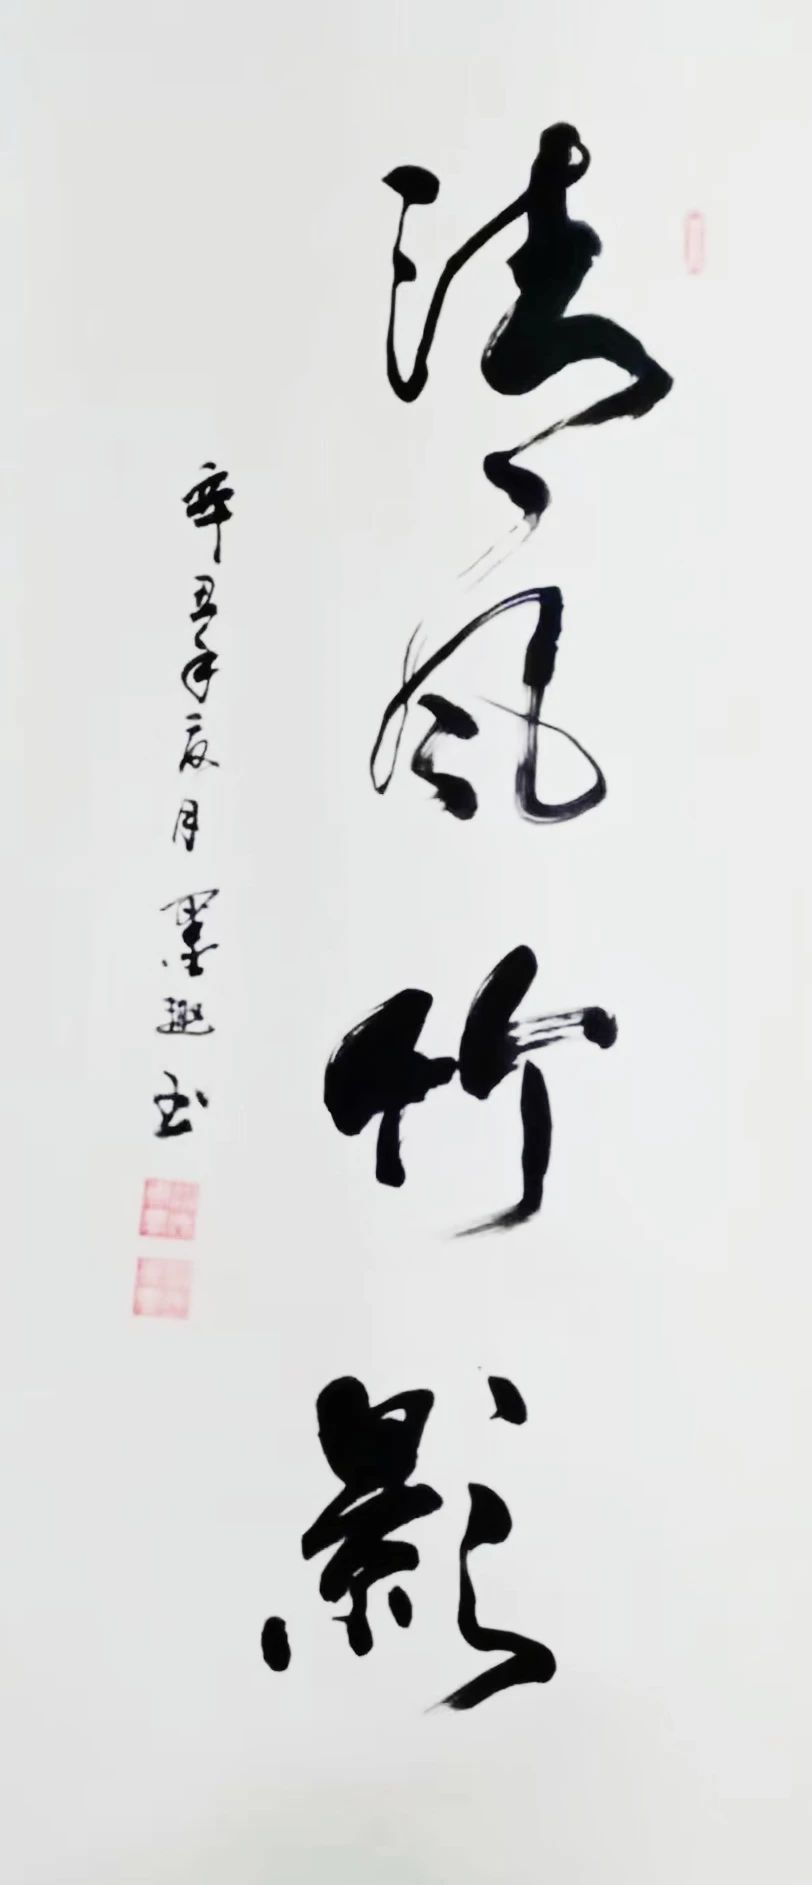 清风竹影
辛丑年二月 墨趣 玉